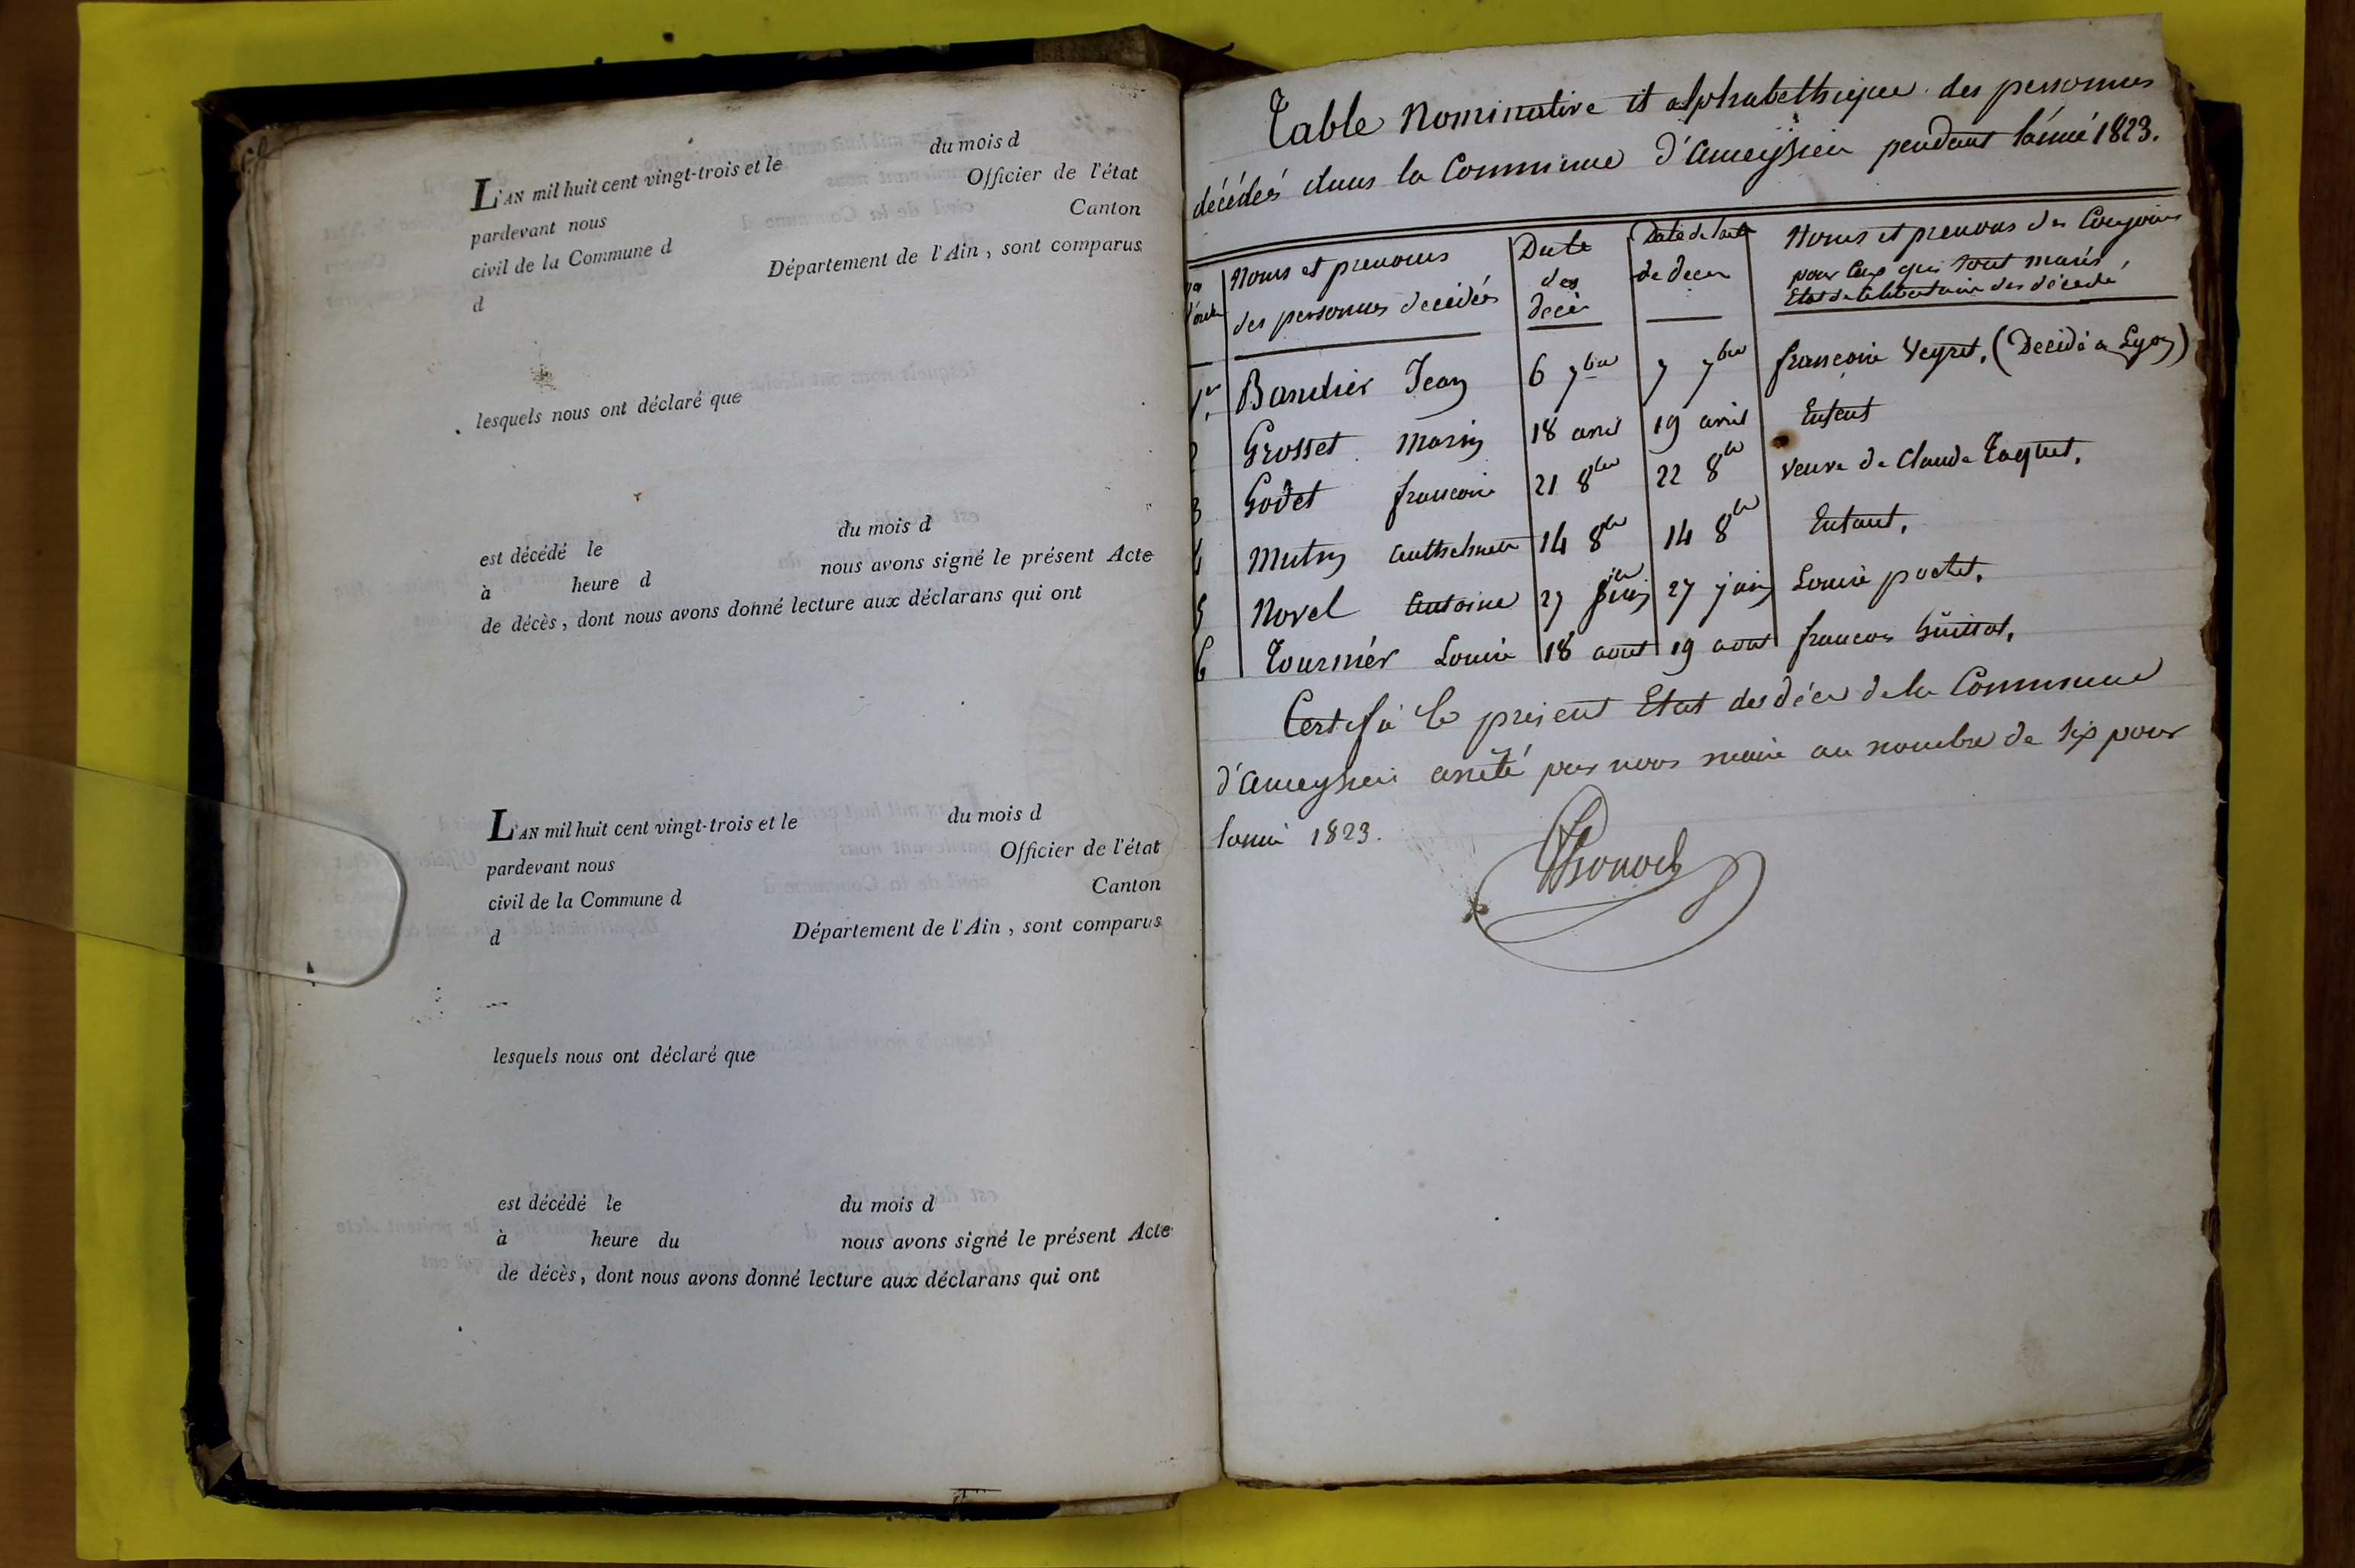 L'AN mil huit cent vingt-trois et le du mois d
pardevant nous Officier de l'état
civil de la Commune d Canton
d Département de l'Ain, sont comparus
lesquels nous ont déclaré que
est décédé le du mois d
à heure d nous avons signé le présent Acte
de décès, dont nous avons donné lecture aux déclarans qui ont
L'AN mil huit cent vingt-trois et le du mois d
pardevant nous Officier de l'état
civil de la Commune d Canton
d Département de l'Ain, sont comparus
lesquels nous ont déclaré que
est décédé le du mois d
à heure du nous avons signé le présent Acte
de décès, dont nous avons donné lecture aux déclarans qui ont
Table Nominative et alphabethique des personnes
décédés dans la Commune d'ameyzieu pendant l'année 1823.
Noms et prenoms des personnes decédés
Date des decès
Date de l'acte de deces
Noms et prenoms des Conjoins
pour Ceux qui sont mariés
Etat de Celibataire des décédé
1er Bandier Jean 6 7bre 7 7bre francoise Veyret, (Decédé a Lyon)
2 Grosset Marin 18 avril 19 avril Enfent
3 Godet francoise 21 8bre 22 8bre veuve de Claude Taquet,
4 Mutin Anthelmette 14 8bre 14 8bre Enfant,
5 Novel Antoine 27 juin 27 juin Louise pochet,
6 Tournier Louise 18 aout 19 aout francois Guittot,
Certifié le present Etat des décès de la Commune
d'ameyzieu arrêté par nous maire au nombre de six pour
l'année 1823.